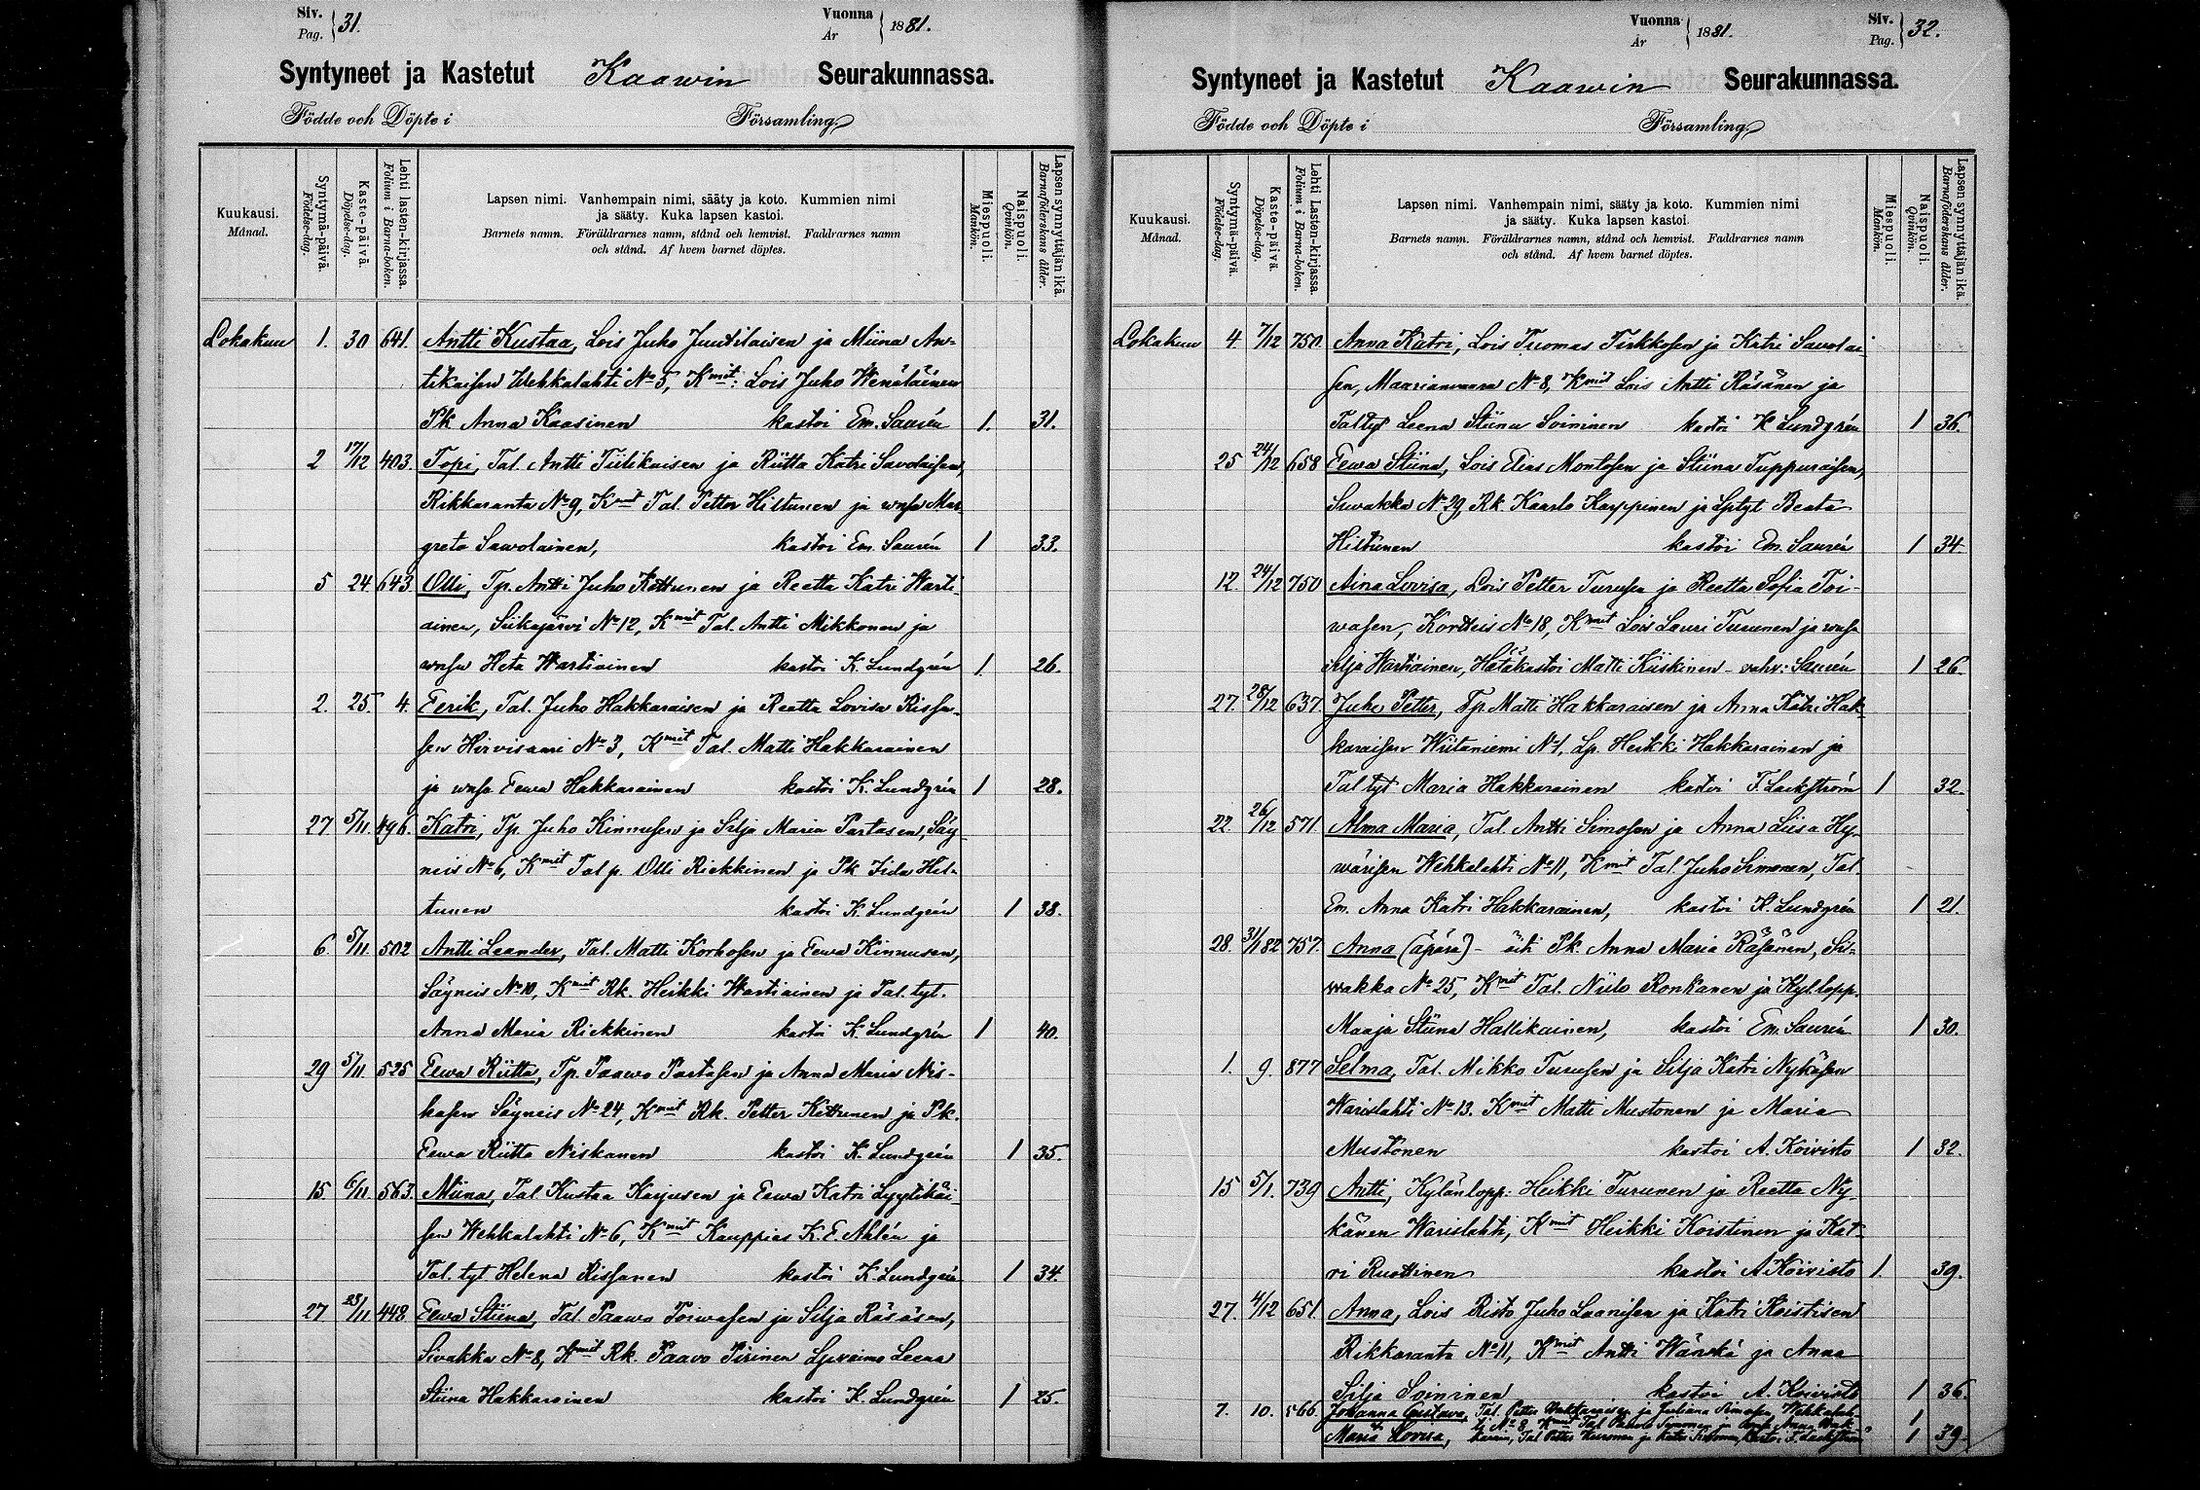 Siv. Pag. 31.
Vuonna År 1881.
Syntyneet ja Kastetut Kaawin Seurakunnassa.
Födde och Döpte i Församling
Kuukausi. Månad.
Syntymä-päivä. Födelse-dag.
Kaste-päivä. Döpelse-dag.
Lehti lasten-kirjassa. Folium i Barna-boken.
Lapsen nimi. Vanhempain nimi, sääty ja koto. Kummien nimi
ja sääty. Kuka lapsen kastoi.
Barnets namn. Föräldrarnes namn, stånd och hemvist. Faddrarnes namn
och stånd. Af hvem barnet döptes.
Miespuoli. Mankön.
Naispuoli. Qvinkön.
Lapsen synnyttäjän ikä. Barnaföderskans ålder.
Lokakuu 1. 30 641. Antti Kustaa, Lois Juho Juutilaisen ja Miina An-
tikaisen Wehkalahti No 5, Kmit: Lois Juho Wenäläinen
Pk Anna Kaasinen kastoi Em. Saurén 1. 31.
2 17/12 403. Topi, Tal. Antti Tiilikaisen ja Riitta Katri Savolaisen,
Rikkaranta No 9, Kmit Tal. Petter Hiltunen ja wmsa Mar-
greta Sawolainen, kastoi Em. Saurén 1 33.
5 24 643. Olli, Tp. Antti Juho Kettunen ja Reetta Katri Warti
ainen, Siikajärvi No 12, Kmit Tal. Antti Mikkonen ja
wmsa Heta Wartiainen kastoi K. Lundgrén 1. 26.
2. 25. 4. Eerik, Tal. Juho Hakkaraisen ja Reetta Lovisa Rissa-
sen Hirvisaari No 3, Kmit Tal. Matti Hakkarainen
ja wmsa Eewa Hakkarainen kastoi K. Lundgrén 1 28.
27 5/11 496. Katri, Tp. Juho Kinnusen ja Silja Maria Partasen, Säy-
neis No 6, Kmit Tal p. Olli Riekkinen ja Pk Iida Hil-
tunen kastoi K. Lundgrén 1 38.
6. 5/11 502 Antti Leander, Tal. Matti Korhosen ja Eewa Kinnusen,
Säyneis No 10, Kmit Rk. Heikki Wartiainen ja Tal. tyt.
Anna Maria Riekkinen kastoi K. Lundgrén 1 40.
29 5/11 525 Eewa Riitta, Tp. Paawo Partasen ja Anna Maria Nis-
kasen Säyneis No 24, Kmit Rk. Petter Kettunen ja Pk.
Eewa Riitta Niskanen kastoi K. Lundgrén 1 35.
15 6/11 563. Miina, Tal. Kustaa Karjusen ja Eewa Katri Lyytikäi
sen Wehkalahti No 6, Kmit Kauppias K. E. Ahlén ja
Tal. tyt Helena Rissanen kastoi K. Lundgrén 1 34.
27 23/11 448 Eewa Stiina, Tal. Paawo Toiwasen ja Silja Räsäsen,
Sivakka No 8, Kmit Rk. Paavo Pirinen Leena
Stiina Hakkarainen kastoi K. Lundgrén 1 25.
Vuonna År 1881.
Siv. Pag. 32.
Syntyneet ja Kastetut Kaawin Seurakunnassa.
Födde och Döpte i Församling
Kuukausi. Månad.
Syntymä-päivä. Födelse-dag.
Kaste-päivä. Döpelse-dag.
Lehti Lasten-kirjassa. Folium i Barna-boken.
Lapsen nimi. Vanhempain nimi, sääty ja koto. Kummien nimi
ja sääty. Kuka lapsen kastoi.
Barnets namn. Föräldrarnes namn, stånd och hemvist. Faddrarnes namn
och stånd. Af hvem barnet döptes.
Miespuoli. Mankön.
Naispuoli. Qvinkön.
Lapsen synnyttäjän ikä. Barnaföderskans ålder.
Lokakuu 4. 7/12 750. Anna Katri, Lois Tuomas Tirkkosen ja Katri Sawolai
sen, Maarianvaara No 8, Kmit Lois Antti Räsänen ja
Tal tyt Leena Stiina Soininen kastoi K Lundgrén 1 36.
25 24/12 658 Eewa Stiina, Lois Elias Montosen ja Stiina Tuppuraisen,
Siwakka No 29, Rk. Kaarlo Karppinen ja Beata
Hiltunen kastoi Em. Saurén 1 34
12. 24/12 750 Aina Lovisa, Lois Petter Turusen ja Reetta Sofia Toi-
wasen, Kortteis No 18, Kmit Lois Lauri Turunen ja wmsa
Silja Wartiainen, Hätäkastoi Matti Kiiskinen - vahv: Saurén 1 26.
27. 28/12 637. Juho Petter, Tp Matti Hakkaraisen ja Anna Katri Hak-
karaisen Wiitaniemi No 1, Lp. Heikki Hakkarainen ja
Tal tyt Maria Hakkarainen kastoi F. Lackström 1 32.
22. 26/12 571. Alma Maria, Tal. Antti Simosen ja Anna Liisa Hy-
wärisen Wehkalahti No 11, Kmit Tal. Juho Simonen, Tal.
Em. Anna Katri Hakkarainen, kastoi K. Lundgrén 1 21.
28. 3/1 82 757. Anna (äpärä) - äiti Pk. Anna Maria Räsänen, Si-
wakka No 25, Kmit Tal. Niilo Ronkanen ja Kyl. lopp.
Maaja Stiina Hallikainen, kastoi Em. Saurén 1 30.
1. 9. 877 Selma, Tal. Mikko Turusen ja Silja Katri Nykäsen
Warislahti No 13. Kmit Matti Mustonen ja Maria
Mustonen kastoi A. Koivisto 1 32.
15 5/1. 739 Antti, Kylänlopp: Heikki Turunen ja Reetta Ny-
känen Warislahti, Kmit Heikki Koistinen ja Kat-
ri Ruottinen kastoi A. Koivisto 1. 39.
27. 4/12 651. Anna, Lois Risto Juho Laanisen ja Katri Koistisen
Rikkaranta No 11, Kmit Antti Wänskä ja Anna
Silja Soininen kastoi A. Koivisto 1 36.
7. 10. 566 Johanna Gustava, Tal. Petter Hakkaraisen ja Juliana Simosen Wehkalah- 1
Maria Lovisa, ti No 8, Kmit Tal Paavo Simonen ja Anna Hak-
karainen, Tal Petter ja Katri kastoi F. Lackström 1 39.